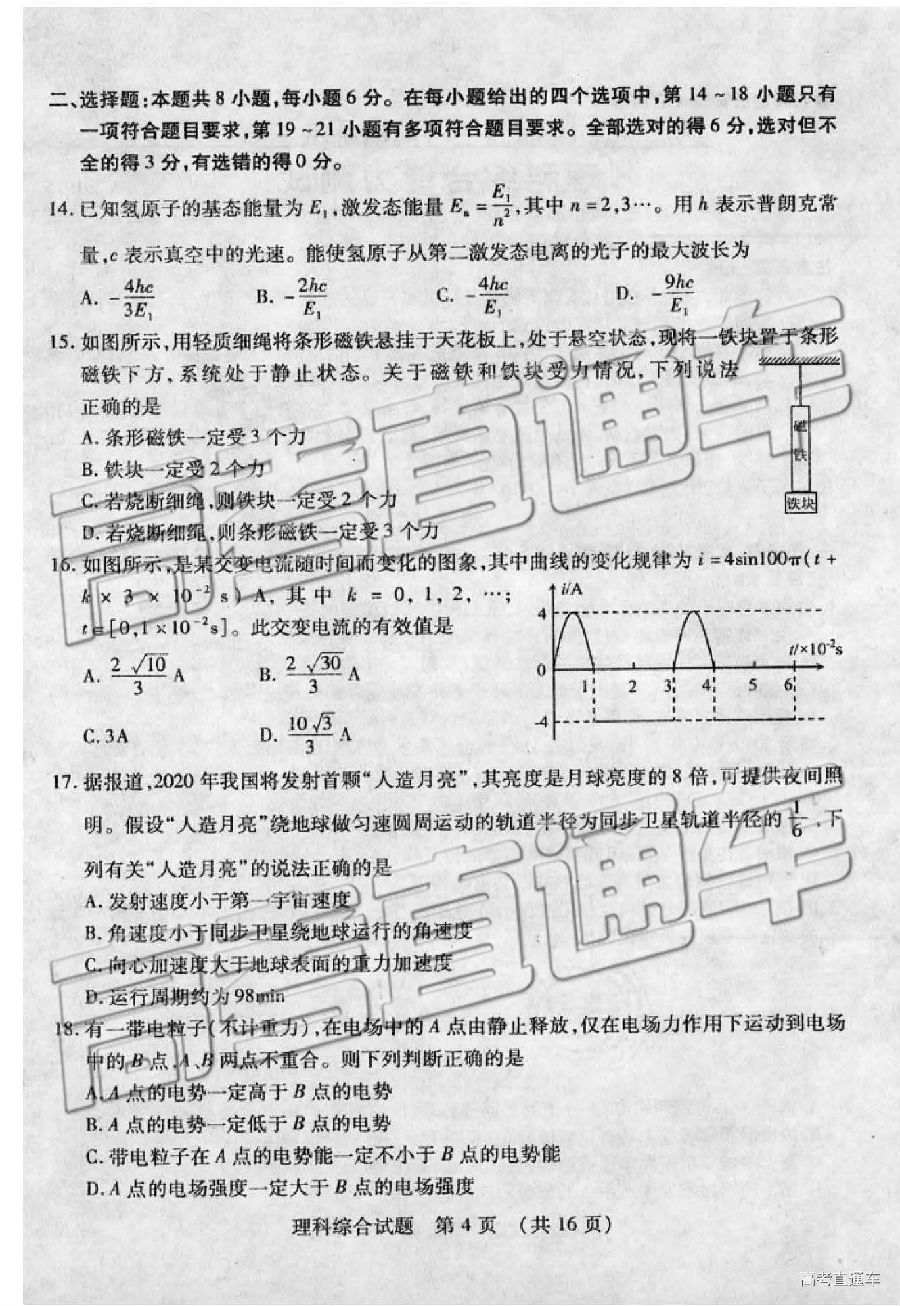 二、选择题:本题共8小题,每小题6分。在每小题给出的四个选项中,第14~18小题只有
一项符合题目要求,第19~21小题有多项符合题目要求。全部选对的得6分,选对但不
全的得3分,有选错的得0分。
14.已知氢原子的基态能量为E₁,激发态能量Eₙ=E₁/n²,其中n=2,3…。用h表示普朗克常
量,c表示真空中的光速。能使氢原子从第二激发态电离的光子的最大波长为
A. -4hc/3E₁ B. -2hc/E₁ C. -4hc/E₁ D. -9hc/E₁
15.如图所示,用轻质细绳将条形磁铁悬挂于天花板上,处于悬空状态,现将一铁块置于条形
磁铁下方,系统处于静止状态。关于磁铁和铁块受力情况,下列说法
正确的是
A.条形磁铁一定受3个力
B.铁块一定受2个力
C.若烧断细绳,则铁块一定受2个力
D.若烧断细绳,则条形磁铁一定受3个力
磁
铁
铁块
16.如图所示,是某交变电流随时间而变化的图象,其中曲线的变化规律为i=4sin100π(t+
k×3×10⁻²s)A,其中k=0,1,2,…;
t∈[0,1×10⁻²s]。此交变电流的有效值是
A. 2√10/3 A B. 2√30/3 A
C.3A D. 10√3/3 A
i/A
4
t/×10⁻²s
0
1 2 3 4 5 6
-4
17.据报道,2020年我国将发射首颗“人造月亮”,其亮度是月球亮度的8倍,可提供夜间照
明。假设“人造月亮”绕地球做匀速圆周运动的轨道半径为同步卫星轨道半径的1/6,下
列有关“人造月亮”的说法正确的是
A.发射速度小于第一宇宙速度
B.角速度小于同步卫星绕地球运行的角速度
C.向心加速度大于地球表面的重力加速度
D.运行周期约为98min
18.有一带电粒子(不计重力),在电场中的A点由静止释放,仅在电场力作用下运动到电场
中的B点,A、B两点不重合。则下列判断正确的是
A.A点的电势一定高于B点的电势
B.A点的电势一定低于B点的电势
C.带电粒子在A点的电势能一定不小于B点的电势能
D.A点的电场强度一定大于B点的电场强度
理科综合试题 第4页 (共16页)
高考直通车
高考直通车
高考直通车